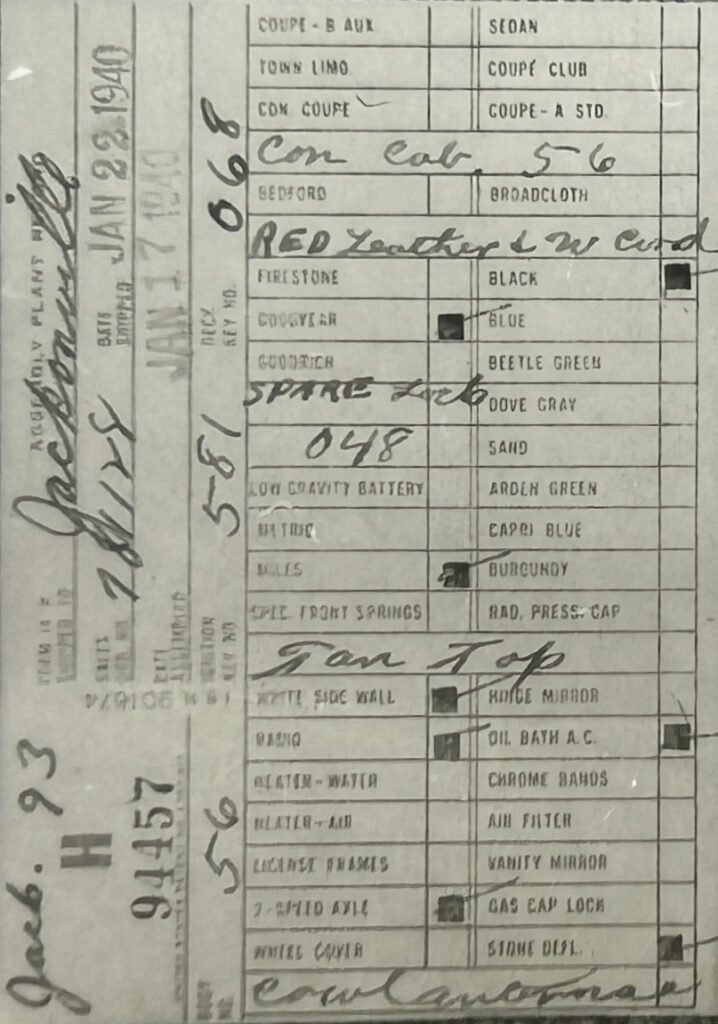 COUPE - B AUX SEDAN
TOWN LIMO COUPÉ CLUB
CON COUPE COUPE - A STD
Con Cab. 56
BEDFORD BROADCLOTH
RED Leather & W Cord
FIRESTONE BLACK
GOODYEAR BLUE
GOODRICH BEETLE GREEN
SPARE Lock DOVE GRAY
048 SAND
LOW GRAVITY BATTERY ARDEN GREEN
METRIC CAPRI BLUE
MILES BURGUNDY
SPEC. FRONT SPRINGS RAD. PRESS. CAP
Tan Top
WHITE SIDE WALL HINGE MIRROR
RADIO OIL BATH A.C.
HEATER - WATER CHROME BANDS
HEATER - AIR AIR FILTER
LICENSE FRAMES VANITY MIRROR
2-SPEED AXLE GAS CAP LOCK
WHEEL COVER STONE DEFL.
Cowl antenna
Jack. 93
H
94457
ASSEMBLY PLANT
Jacksonville
DATE SHIPPED
JAN 22 1940
JAN 17 1940
DECK KEY NO.
068
IGNITION KEY NO
581
BODY NO.
56